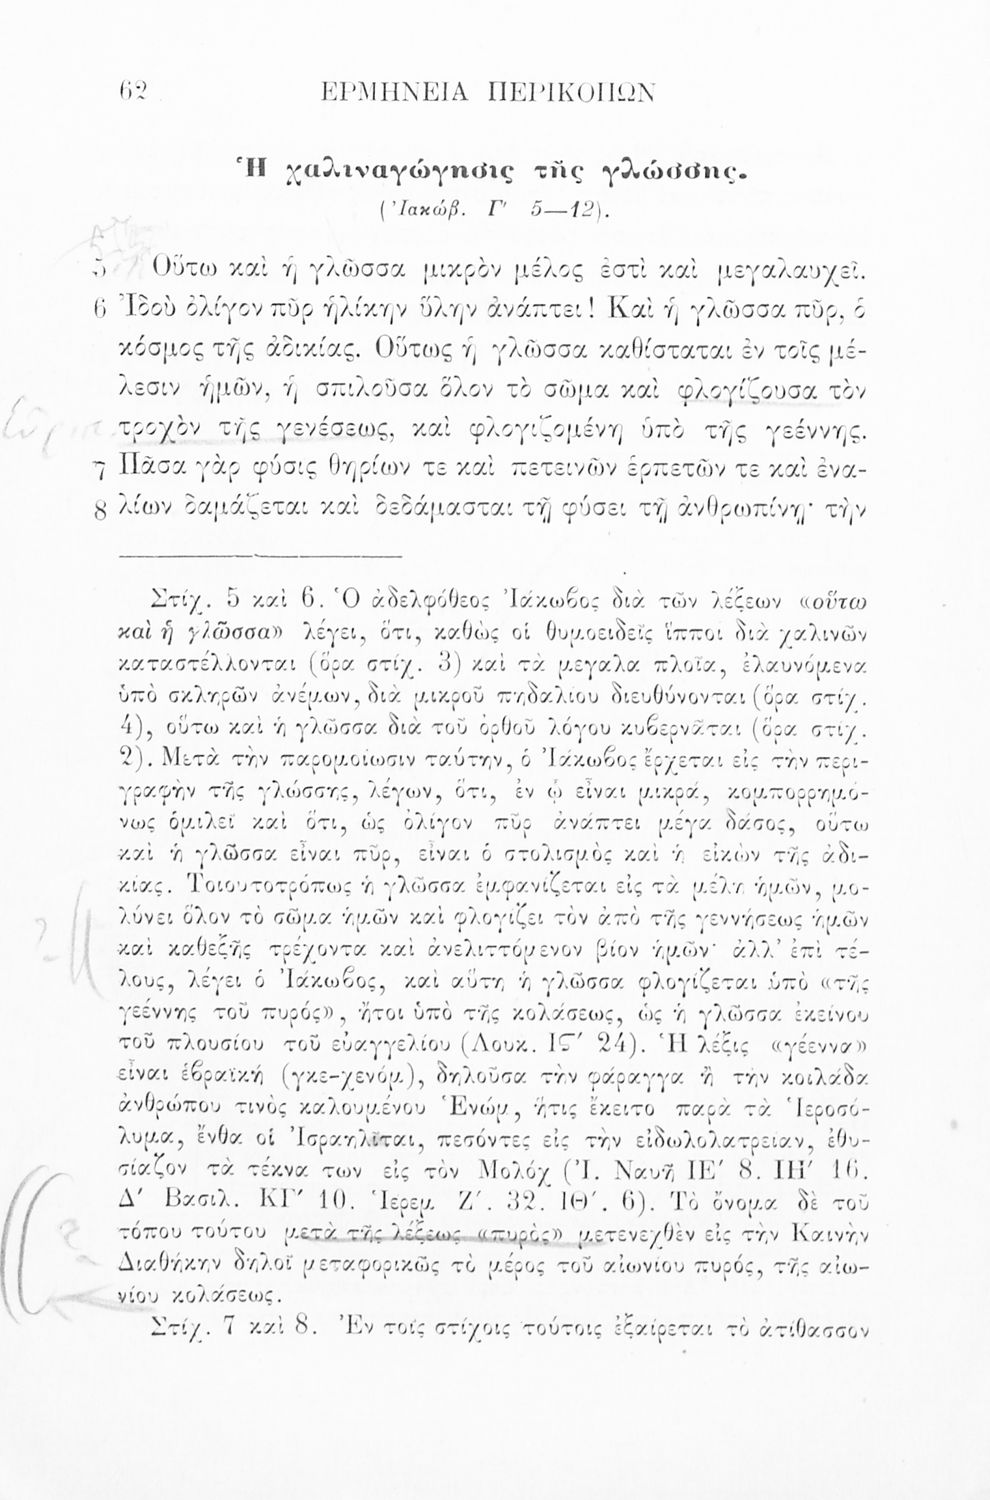 62 ΕΡΜΗΝΕΙΑ ΠΕΡΙΚΟΠΩΝ
Ἡ χαλιναγώγησις τῆς γλώσσης.
(Ἰακώβ. Γ' 5—12).
5 Οὕτω καὶ ἡ γλῶσσα μικρὸν μέλος ἐστὶ καὶ μεγαλαυχεῖ.
6 Ἰδοὺ ὀλίγον πῦρ ἡλίκην ὕλην ἀνάπτει! Καὶ ἡ γλῶσσα πῦρ, ὁ
κόσμος τῆς ἀδικίας. Οὕτως ἡ γλῶσσα καθίσταται ἐν τοῖς μέ-
λεσιν ἡμῶν, ἡ σπιλοῦσα ὅλον τὸ σῶμα καὶ φλογίζουσα τὸν
τροχὸν τῆς γενέσεως, καὶ φλογιζομένη ὑπὸ τῆς γεέννης.
7 Πᾶσα γὰρ φύσις θηρίων τε καὶ πετεινῶν ἑρπετῶν τε καὶ ἐνα-
8 λίων δαμάζεται καὶ δεδάμασται τῇ φύσει τῇ ἀνθρωπίνῃ· τὴν
Στίχ. 5 καὶ 6. Ὁ ἀδελφόθεος Ἰάκωβος διὰ τῶν λέξεων «οὕτω
καὶ ἡ γλῶσσα» λέγει, ὅτι, καθὼς οἱ θυμοειδεῖς ἵπποι διὰ χαλινῶν
καταστέλλονται (ὅρα στίχ. 3) καὶ τὰ μεγαλα πλοῖα, ἐλαυνόμενα
ὑπὸ σκληρῶν ἀνέμων, διὰ μικροῦ πηδαλίου διευθύνονται (ὅρα στίχ.
4), οὕτω καὶ ἡ γλῶσσα διὰ τοῦ ὀρθοῦ λόγου κυβερνᾶται (ὅρα στίχ.
2). Μετὰ τὴν παρομοίωσιν ταύτην, ὁ Ἰάκωβος ἔρχεται εἰς τὴν περι-
γραφὴν τῆς γλώσσης, λέγων, ὅτι, ἐν ᾧ εἶναι μικρά, κομπορρημό-
νως ὁμιλεῖ καὶ ὅτι, ὡς ὀλίγον πῦρ ἀνάπτει μέγα δάσος, οὕτω
καὶ ἡ γλῶσσα εἶναι πῦρ, εἶναι ὁ στολισμὸς καὶ ἡ εἰκὼν τῆς ἀδι-
κίας. Τοιουτοτρόπως ἡ γλῶσσα ἐμφανίζεται εἰς τὰ μέλη ἡμῶν, μο-
λύνει ὅλον τὸ σῶμα ἡμῶν καὶ φλογίζει τὸν ἀπὸ τῆς γεννήσεως ἡμῶν
καὶ καθεξῆς τρέχοντα καὶ ἀνελιττόμενον βίον ἡμῶν· ἀλλ' ἐπὶ τέ-
λους, λέγει ὁ Ἰάκωβος, καὶ αὕτη ἡ γλῶσσα φλογίζεται ὑπὸ «τῆς
γεέννης τοῦ πυρός», ἤτοι ὑπὸ τῆς κολάσεως, ὡς ἡ γλῶσσα ἐκείνου
τοῦ πλουσίου τοῦ εὐαγγελίου (Λουκ. ΙϚ' 24). Ἡ λέξις «γέεννα»
εἶναι ἑβραϊκή (γκε-χενόμ), δηλοῦσα τὴν φάραγγα ἢ τὴν κοιλάδα
ἀνθρώπου τινὸς καλουμένου Ἐνώμ, ἥτις ἔκειτο παρὰ τὰ Ἱεροσό-
λυμα, ἔνθα οἱ Ἰσραηλῖται, πεσόντες εἰς τὴν εἰδωλολατρείαν, ἐθυ-
σίαζον τὰ τέκνα των εἰς τὸν Μολόχ (Ἰ. Ναυῆ ΙΕ' 8. ΙΗ' 16.
Δ' Βασιλ. ΚΓ' 10. Ἱερεμ. Ζ'. 32. ΙΘ'. 6). Τὸ ὄνομα δὲ τοῦ
τόπου τούτου μετὰ τῆς λέξεως «πυρὸς» μετενεχθὲν εἰς τὴν Καινὴν
Διαθήκην δηλοῖ μεταφορικῶς τὸ μέρος τοῦ αἰωνίου πυρός, τῆς αἰω-
νίου κολάσεως.
Στίχ. 7 καὶ 8. Ἐν τοῖς στίχοις τούτοις ἐξαίρεται τὸ ἀτίθασσον